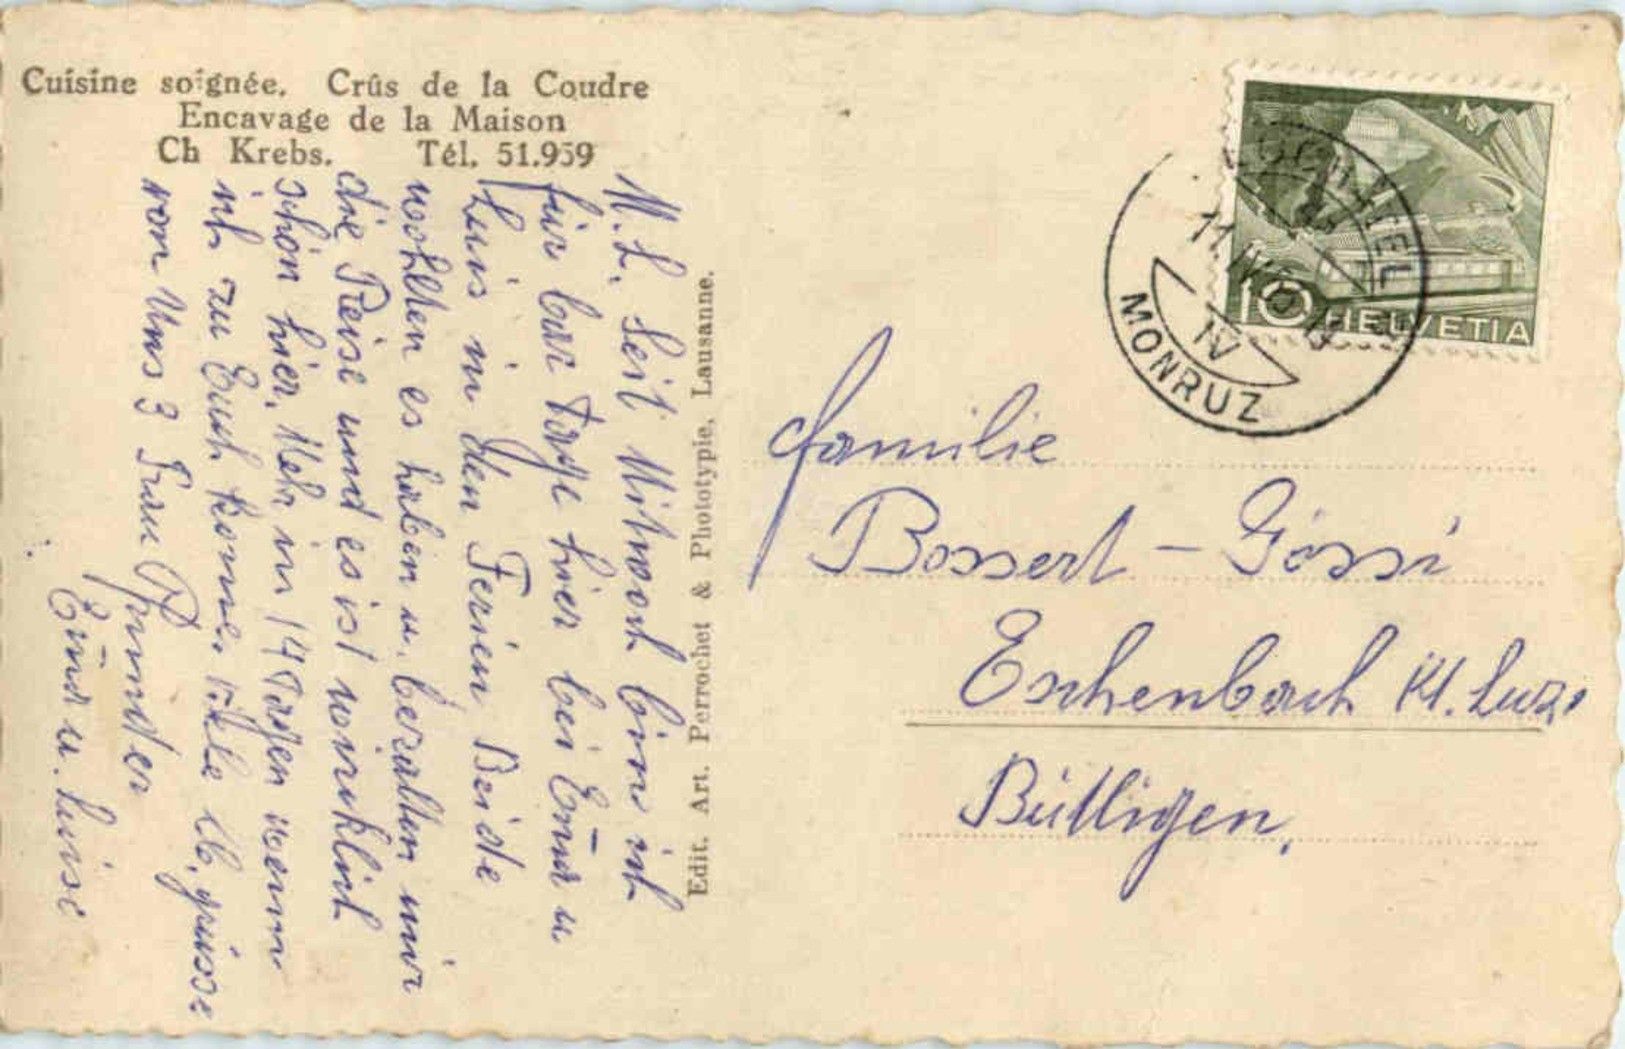 Cuisine soignée. Crûs de la Coudre
Encavage de la Maison
Ch Krebs. Tél. 51.959
M. L. Seit Mitwoch bin ich
für bar Tage hier bei Erna u
Luis in den Ferien, Beide
wollten es haben u. bezalten mir
die Reise und es ist wirklich
schön hier. Mehr in 14 Tagen wenn
ich zu Euch komme. viele lb. grüsse
von Uns 3 Frau
Erna u. Luise
Edit. Art. Perrochet & Phototypie, Lausanne.
NEUCHÂTEL
11.
IV
MONRUZ
10 HELVETIA
Familie
Bossert - Gössi
Eschenbach Kt. Luz.
Bütligen,